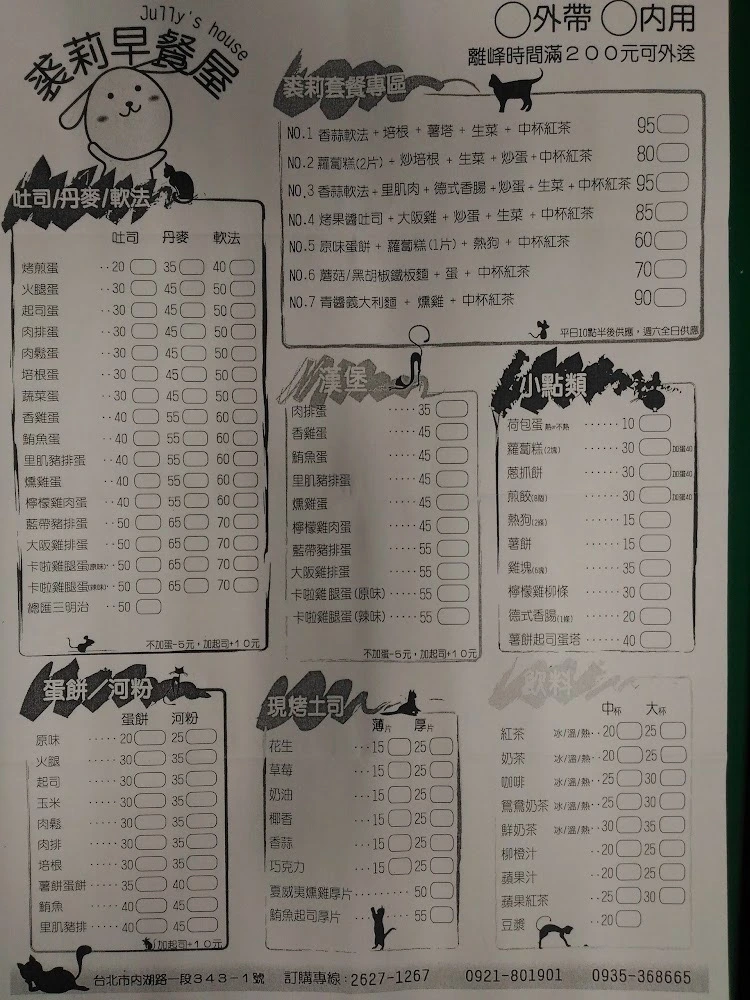 Jully's house
裘莉早餐屋
◯外帶 ◯內用
離峰時間滿200元可外送
裘莉套餐專區
NO.1 香蒜軟法+培根+薯塔+生菜+中杯紅茶 95
NO.2 蘿蔔糕(2片)+炒培根+生菜+炒蛋+中杯紅茶 80
NO.3 香蒜軟法+里肌肉+德式香腸+炒蛋+生菜+中杯紅茶 95
NO.4 烤果醬吐司+大阪雞+炒蛋+生菜+中杯紅茶 85
NO.5 原味蛋餅+蘿蔔糕(1片)+熱狗+中杯紅茶 60
NO.6 蘑菇/黑胡椒鐵板麵+蛋+中杯紅茶 70
NO.7 青醬義大利麵+燻雞+中杯紅茶 90
平日10點半後供應,週六全日供應
吐司/丹麥/軟法
吐司 丹麥 軟法
烤煎蛋 ‥20 35 40
火腿蛋 ‥30 45 50
起司蛋 ‥30 45 50
肉排蛋 ‥30 45 50
肉鬆蛋 ‥30 45 50
培根蛋 ‥30 45 50
蔬菜蛋 ‥30 45 50
香雞蛋 ‥40 55 60
鮪魚蛋 ‥40 55 60
里肌豬排蛋 ‥40 55 60
燻雞蛋 ‥40 55 60
檸檬雞肉蛋 ‥40 55 60
藍帶豬排蛋 ‥50 65 70
大阪雞排蛋 ‥50 65 70
卡啦雞腿蛋(原味)‥50 65 70
卡啦雞腿蛋(辣味)‥50 65 70
總匯三明治 ‥50
不加蛋-5元,加起司+10元
漢堡
肉排蛋 ‥‥35
香雞蛋 ‥‥45
鮪魚蛋 ‥‥45
里肌豬排蛋 ‥‥45
燻雞蛋 ‥‥45
檸檬雞肉蛋 ‥‥45
藍帶豬排蛋 ‥‥55
大阪雞排蛋 ‥‥55
卡啦雞腿蛋(原味)‥‥55
卡啦雞腿蛋(辣味)‥‥55
不加蛋-5元,加起司+10元
小點類
荷包蛋 熟or不熟 ‥‥‥10
蘿蔔糕(2塊) ‥‥‥30 加蛋40
蔥抓餅 ‥‥‥30 加蛋40
煎餃(8顆) ‥‥‥30 加蛋40
熱狗(2條) ‥‥‥15
薯餅 ‥‥‥15
雞塊(6塊) ‥‥‥35
檸檬雞柳條 ‥‥‥30
德式香腸(1條) ‥‥‥20
薯餅起司蛋塔 ‥‥‥40
蛋餅/河粉
蛋餅 河粉
原味 ‥‥‥20 25
火腿 ‥‥‥30 35
起司 ‥‥‥30 35
玉米 ‥‥‥30 35
肉鬆 ‥‥‥30 35
肉排 ‥‥‥30 35
培根 ‥‥‥30 35
薯餅蛋餅‥‥35 40
鮪魚 ‥‥‥40 45
里肌豬排‥‥40 45
加起司+10元
現烤土司
薄片 厚片
花生 ‥‥15 25
草莓 ‥‥15 25
奶油 ‥‥15 25
椰香 ‥‥15 25
香蒜 ‥‥15 25
巧克力 ‥‥15 25
夏威夷燻雞厚片‥‥‥‥50
鮪魚起司厚片 ‥‥‥55
飲料
中杯 大杯
紅茶 冰/溫/熱‥20 25
奶茶 冰/溫/熱‥20 25
咖啡 冰/溫/熱‥25 30
鴛鴦奶茶 冰/溫/熱‥25 30
鮮奶茶 冰/溫/熱‥30 35
柳橙汁 ‥20 25
蘋果汁 ‥20 25
蘋果紅茶 ‥25 30
豆漿 ‥20
台北市內湖路一段343-1號 訂購專線:2627-1267 0921-801901 0935-368665